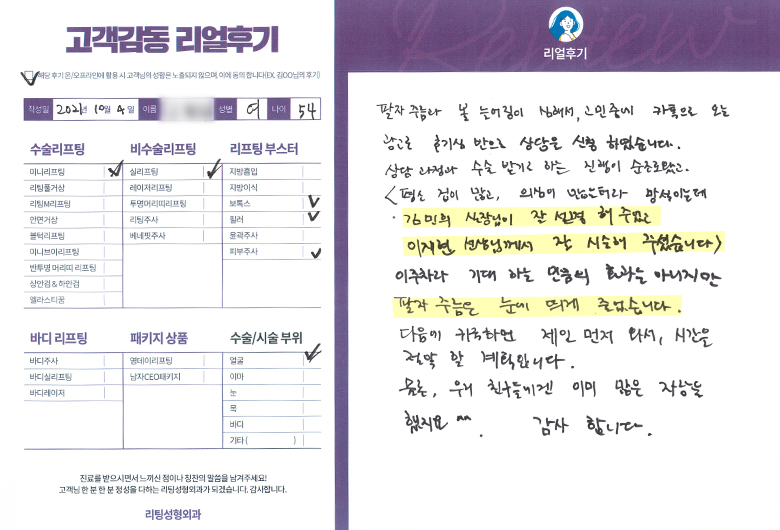 고객감동 리얼후기
해당 후기 온/오프라인에 활용 시 고객님의 성함은 노출되지 않으며, 이에 동의 합니다(EX. 김OO님의 후기)
작성일 2021년 10월 4일 이름 성별 여 나이 54
수술리프팅
미니리프팅
리팅풀거상
리팅M리프팅
안면거상
볼턱리프팅
미니브이리프팅
반투명 머리띠 리프팅
상안검 & 하안검
엘라스티꿈
비수술리프팅
실리프팅
레이저리프팅
투명머리띠리프팅
리팅주사
베네핏주사
리프팅 부스터
지방흡입
지방이식
보톡스
필러
윤곽주사
피부주사
바디 리프팅
바디주사
바디실리프팅
바디레이저
패키지 상품
영데이리프팅
남자CEO패키지
수술/시술 부위
얼굴
이마
눈
목
바디
기타 ( )
진료를 받으시면서 느끼신 점이나 칭찬의 말씀을 남겨주세요!
고객님 한 분 한 분 정성을 다하는 리팅성형외과가 되겠습니다. 감사합니다.
리팅성형외과
Review
리얼후기
팔자 주름과 볼 늘어짐이 심해서, 고민중에 카톡으로 오는
광고로 호기심 반으로 상담을 신청 하였습니다.
상담 과정과 수술 받기로 하는 진행이 순조로웠고.
<평소 겁이 많고, 의심이 많았는터라 망설이는데
김민희 실장님이 잘 설명 해 주었고
이지현 선생님께서 잘 시술해 주셨습니다>
이주차라 기대 하는 만큼의 효과는 아니지만
팔자 주름은 눈에 띄게 줄었습니다.
다음에 귀국하면 제일 먼저 와서, 시간을
절약 할 계획입니다.
물론, 우리 친구들에겐 이미 많은 자랑을
했지요 ^^. 감사 합니다.